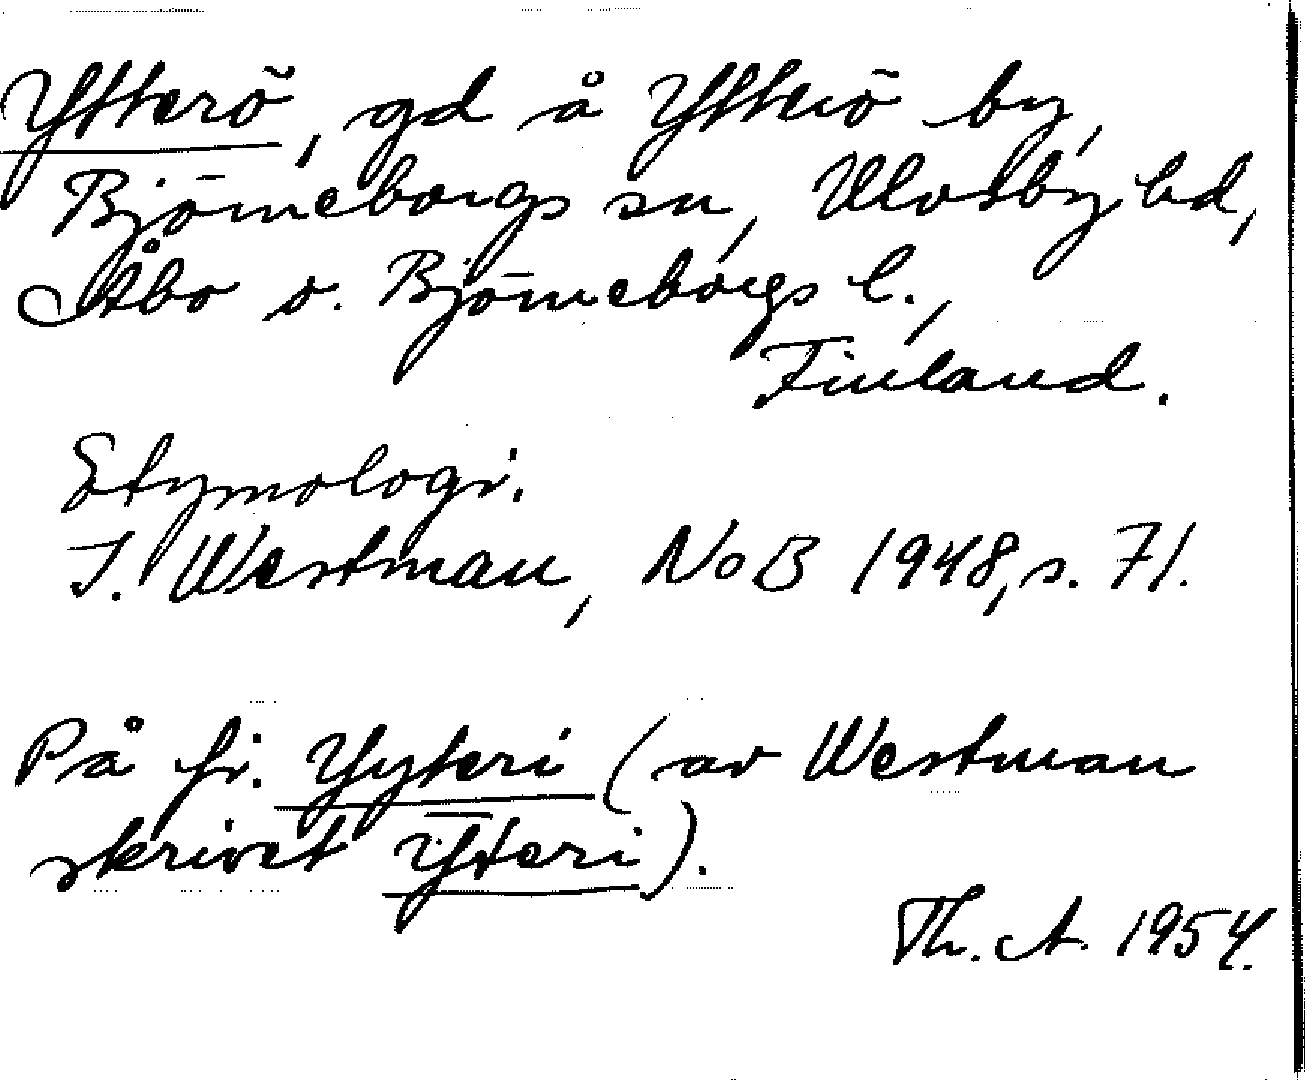 Ytterö, gd å Ytterö by,
Björneborgs sn, Ulvsby hd,
Åbo o. Björneborgs l.,
Finland.
Etymologi.
I. Westman, NoB 1948, s. 71.
På fi. Yyteri (av Westman
skrivet Ȳteri).
Th. A. 1954.